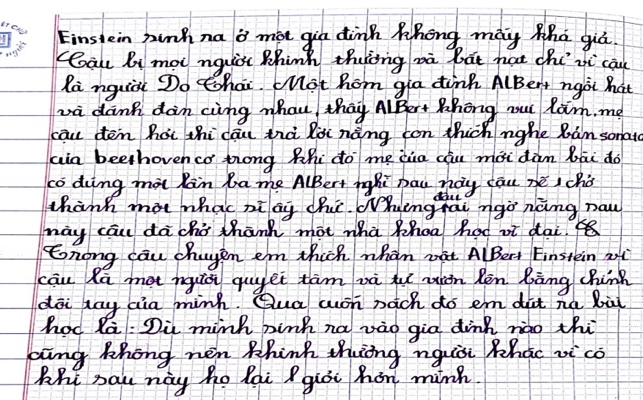 Einstein sinh ra ở một gia đình không mấy khá giả.
Cậu bị mọi người khinh thường và bắt nạt chỉ vì cậu
là người Do Thái. Một hôm gia đình ALBert ngồi hát
và đánh đàn cùng nhau, thấy ALBert không vui lắm, mẹ
cậu đến hỏi thì cậu trả lời rằng con thích nghe bản sonata
của beethoven cơ trong khi đó mẹ của cậu mới đàn bài đó
có đúng một lần ba mẹ ALBert nghĩ sau này cậu sẽ chở
thành một nhạc sĩ ấy chứ. Nhưng đâu ai ngờ rằng sau
này cậu đã chở thành một nhà khoa học vĩ đại.
Trong câu chuyện em thích nhân vật ALBert Einstein vì
cậu là một người quyết tâm và tự vươn lên bằng chính
đôi tay của mình. Qua cuốn sách đó em dút ra bài
học là: Dù mình sinh ra vào gia đình nào thì
cũng không nên khinh thường người khác vì có
khi sau này họ lại giỏi hơn mình.